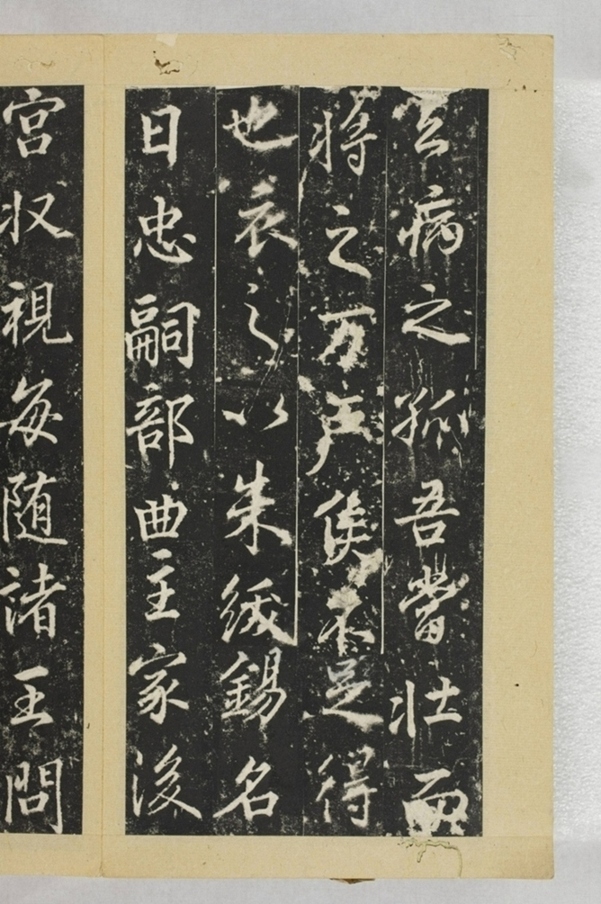 去病之孤吾當壯而
將之万户侯不足得
也衣之以朱紱錫名
曰忠嗣部曲主家後
宮収視每随諸王問